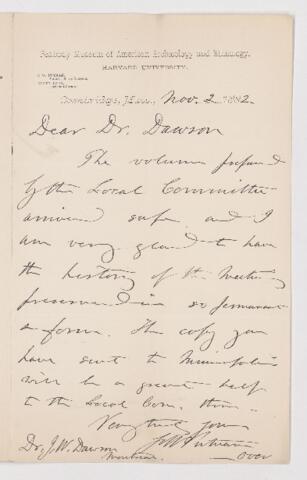 Peabody Museum of American Archaeology and Ethnology,
HARVARD UNIVERSITY.
Cambridge, Mass., Nov. 2 1882.
Dear Dr. Dawson
The volume prepared
by the Local Committee
arrived safe and I
am very glad to have
the history of the Meeting
preserved in so permanent
a form. The copy you
have sent to Minneapolis
will be a great help
to the Local Com. there.
Very truly yours
F W Putnam
Dr. J. W. Dawson
Montreal.
over